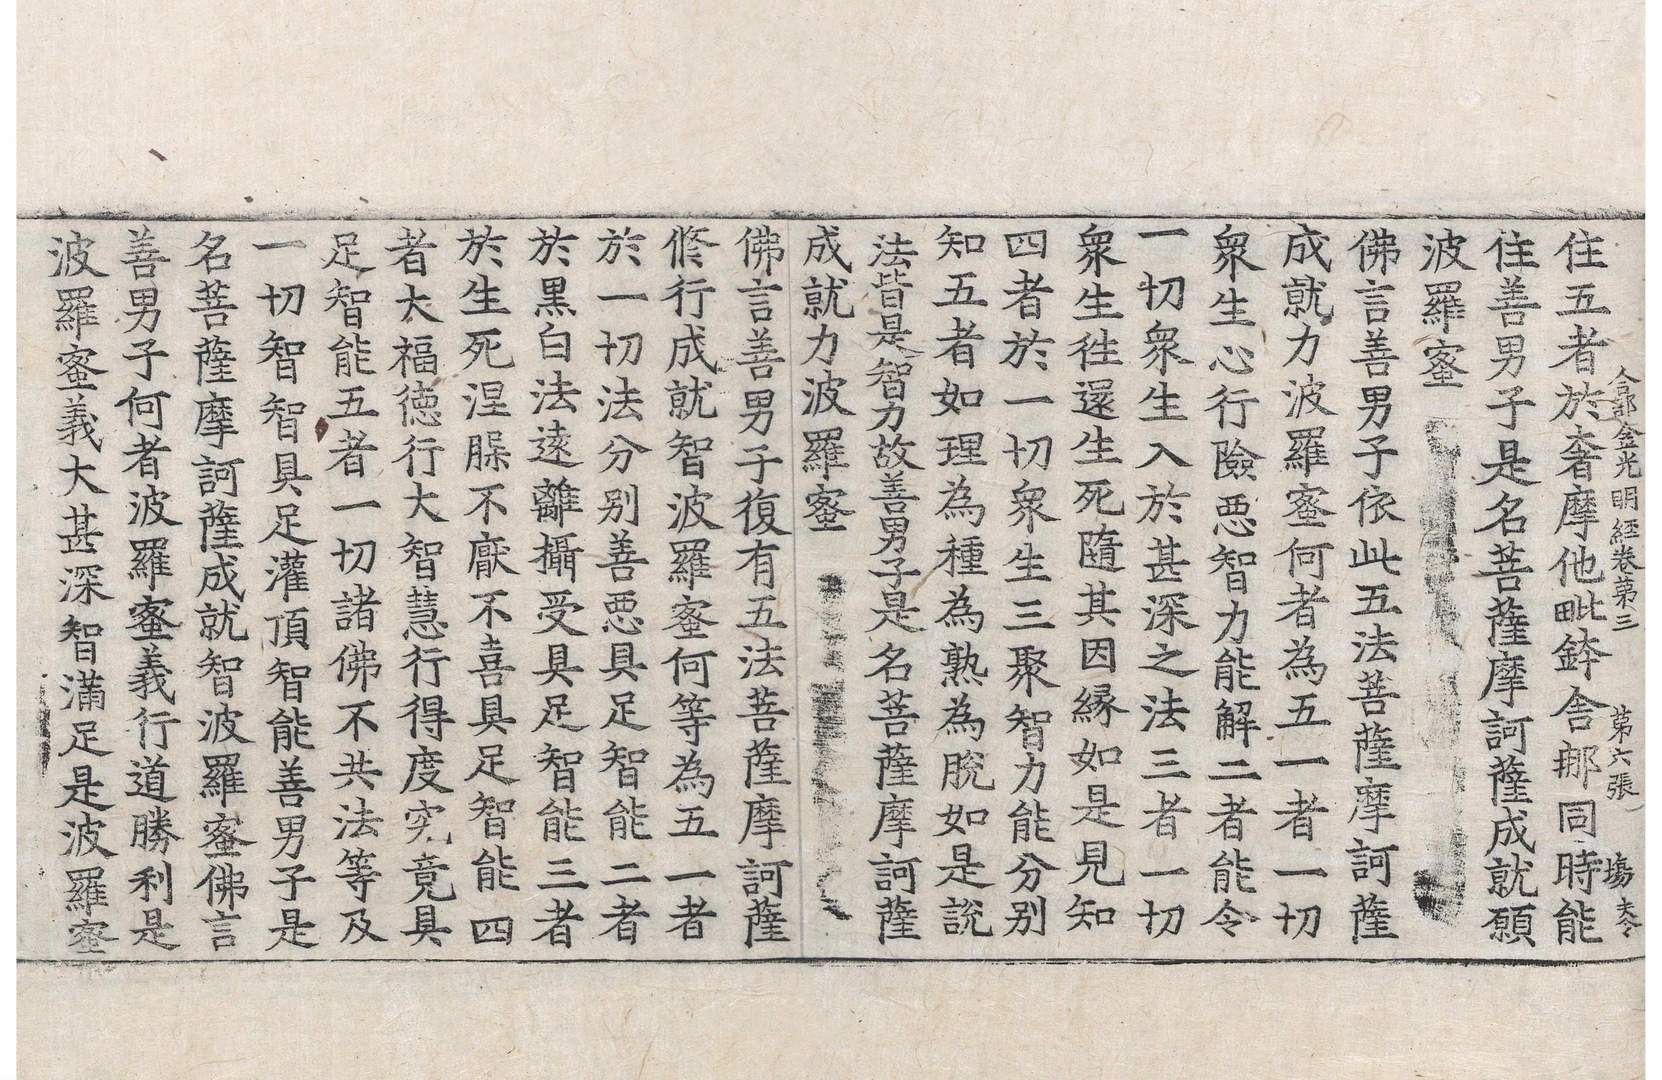 合部金光明經卷第三 第六張 塲
住五者於奢摩他毗鉢舍那同時能
住善男子是名菩薩摩訶薩成就願
波羅蜜
佛言善男子依此五法菩薩摩訶薩
成就力波羅蜜何者為五一者一切
衆生心行險惡智力能解二者能令
一切衆生入於甚深之法三者一切
衆生徃還生死隨其因縁如是見知
四者於一切衆生三聚智力能分别
知五者如理為種為熟為脫如是說
法皆是智力故善男子是名菩薩摩訶薩
成就力波羅蜜
佛言善男子復有五法菩薩摩訶薩
修行成就智波羅蜜何等為五一者
於一切法分别善惡具足智能二者
於黑白法遠離攝受具足智能三者
於生死涅槃不厭不喜具足智能四
者大福德行大智慧行得度究竟具
足智能五者一切諸佛不共法等及
一切智智具足灌頂智能善男子是
名菩薩摩訶薩成就智波羅蜜佛言
善男子何者波羅蜜義行道勝利是
波羅蜜義大甚深智滿足是波羅蜜